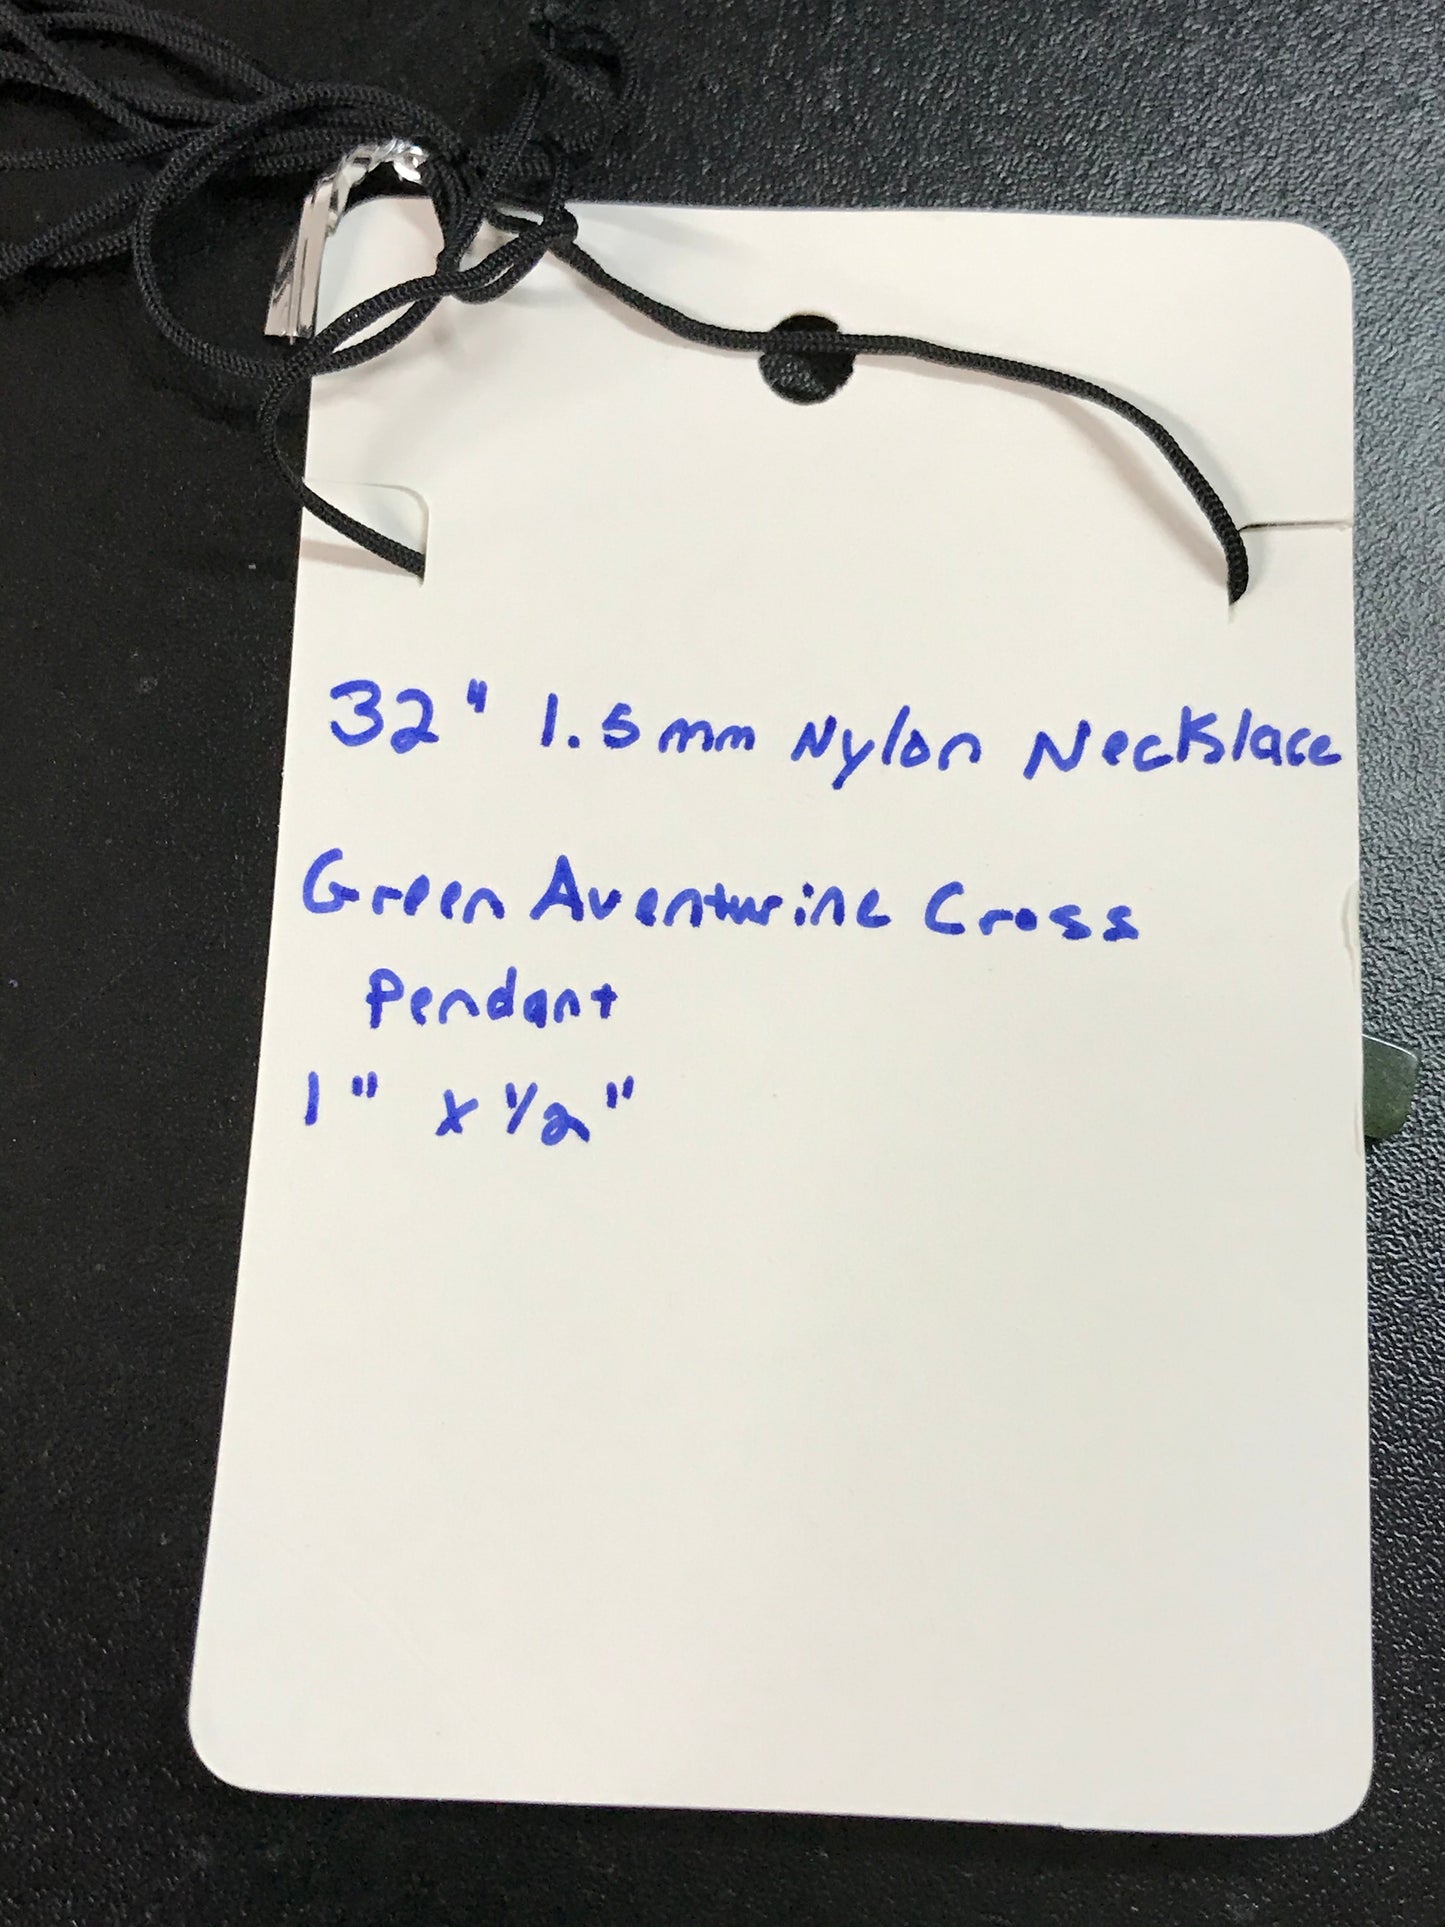 32" 1.5mm Nylon Necklace
Green Aventurine Cross
Pendant
1" x 1/2"